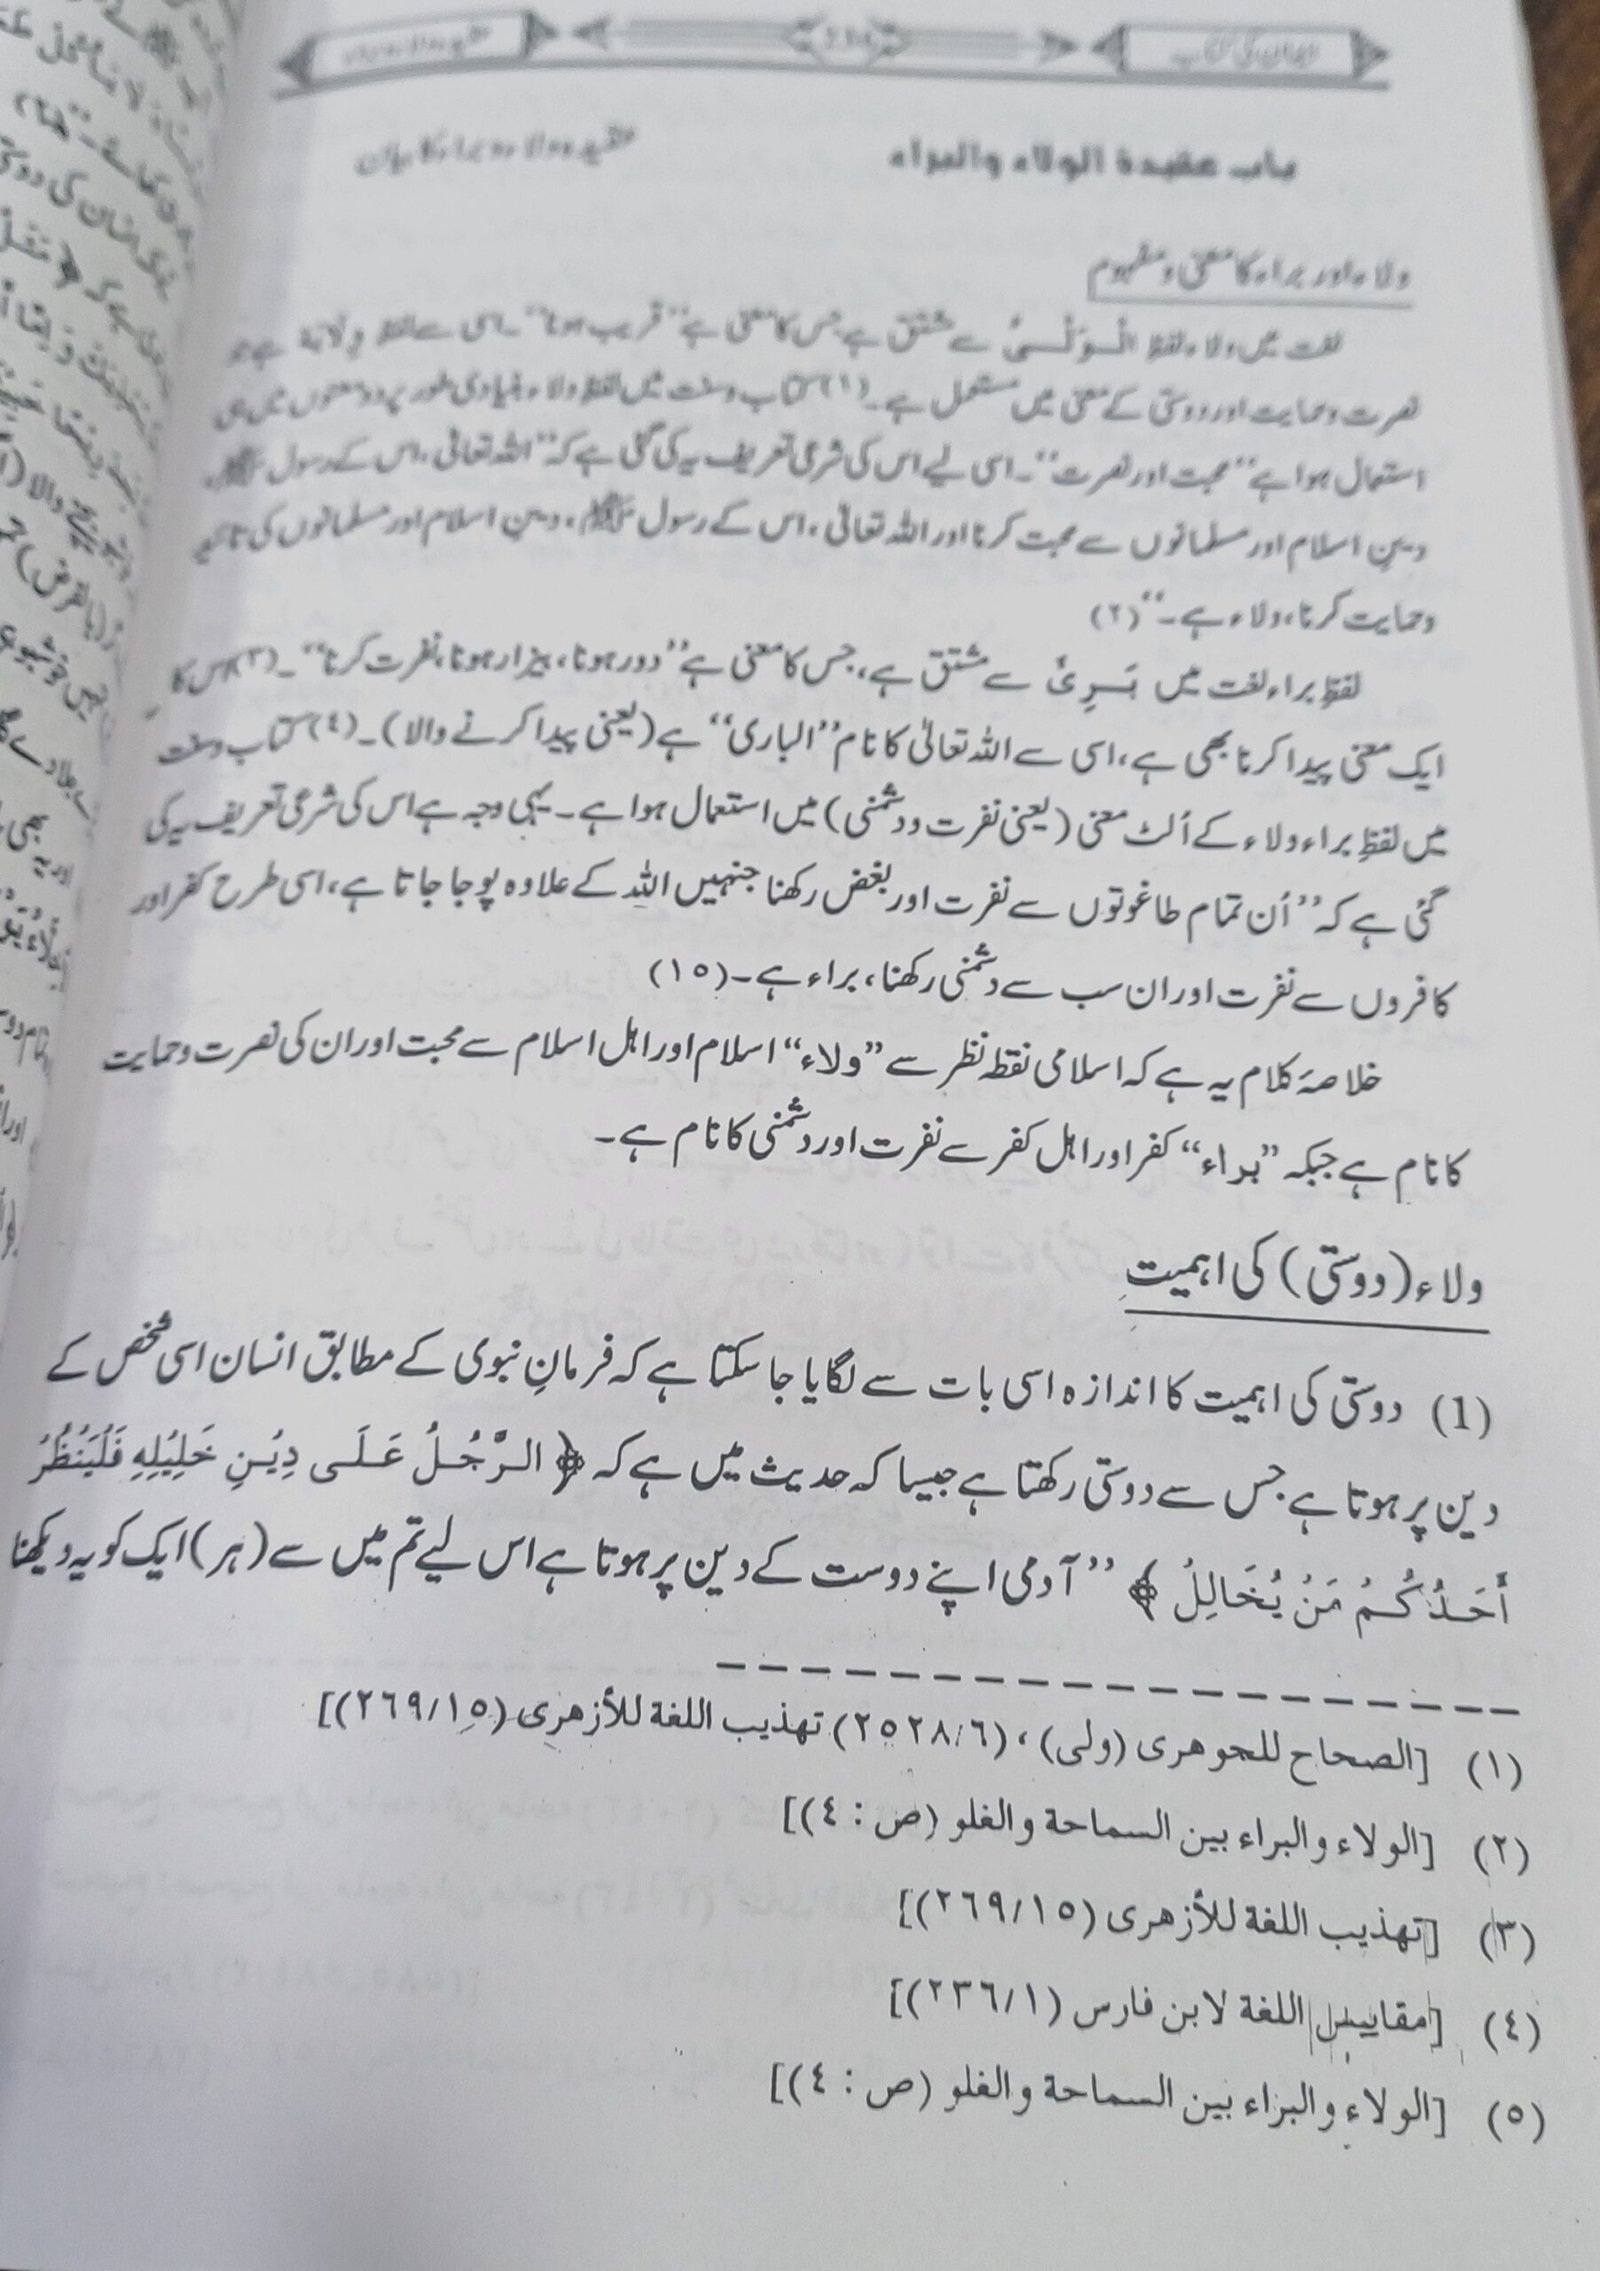 ایمان کی کتاب
باب عقيدة الولاء والبراء
عقیدہ ولاء و براء کا بیان
ولاء اور براء کا معنی و مفہوم
لغت میں ولاء لفظ الْوَلْىُ سے مشتق ہے جس کا معنی ہے ’’قریب ہونا‘‘۔ اسی سے لفظ وِلَايَة ہے جو
نصرت و حمایت اور دوستی کے معنی میں مستعمل ہے۔(۱) کتاب وسنت میں لفظ ولاء بنیادی طور پر دو معنوں میں ہی
استعمال ہوا ہے ’’محبت اور نصرت‘‘۔ اسی لیے اس کی شرعی تعریف یہ کی گئی ہے کہ ’’اللہ تعالیٰ، اس کے رسول ﷺ،
دینِ اسلام اور مسلمانوں سے محبت کرنا اور اللہ تعالیٰ، اس کے رسول ﷺ، دینِ اسلام اور مسلمانوں کی تائید
وحمایت کرنا، ولاء ہے۔‘‘(۲)
لفظِ براء لغت میں بَرِئَ سے مشتق ہے، جس کا معنی ہے ’’دور ہونا، بیزار ہونا، نفرت کرنا‘‘۔(۳) اس کا
ایک معنی پیدا کرنا بھی ہے، اسی سے اللہ تعالیٰ کا نام ’’الباری‘‘ ہے (یعنی پیدا کرنے والا)۔(٤) کتاب وسنت
میں لفظِ براء ولاء کے اُلٹ معنی (یعنی نفرت ودشمنی) میں استعمال ہوا ہے۔ یہی وجہ ہے اس کی شرعی تعریف یہ کی
گئی ہے کہ ’’اُن تمام طاغوتوں سے نفرت اور بغض رکھنا جنہیں اللہ کے علاوہ پوجا جاتا ہے، اسی طرح کفر اور
کافروں سے نفرت اور ان سب سے دشمنی رکھنا، براء ہے۔(١٥)
خلاصۂ کلام یہ ہے کہ اسلامی نقطۂ نظر سے ”ولاء“ اسلام اور اہل اسلام سے محبت اور ان کی نصرت وحمایت
کا نام ہے جبکہ ”براء“ کفر اور اہل کفر سے نفرت اور دشمنی کا نام ہے۔
ولاء (دوستی) کی اہمیت
(1) دوستی کی اہمیت کا اندازہ اسی بات سے لگایا جا سکتا ہے کہ فرمانِ نبوی کے مطابق انسان اسی شخص کے
دین پر ہوتا ہے جس سے دوستی رکھتا ہے جیسا کہ حدیث میں ہے کہ ﴿ الرَّجُلُ عَلَى دِيْنِ خَلِيْلِهِ فَلْيَنْظُرْ
أَحَدُكُمْ مَنْ يُخَالِلُ ﴾ ’’آدمی اپنے دوست کے دین پر ہوتا ہے اس لیے تم میں سے (ہر) ایک کو یہ دیکھنا
(١) [الصحاح للجوهرى (ولى)، (٢٥٢٨/٦) تهذيب اللغة للأزهرى (٢٦٩/١٥)]
(٢) [الولاء والبراء بين السماحة والغلو (ص : ٤)]
(٣) [تهذيب اللغة للأزهرى (٢٦٩/١٥)]
(٤) [مقاييس اللغة لابن فارس (٢٣٦/١)]
(٥) [الولاء والبراء بين السماحة والغلو (ص : ٤)]